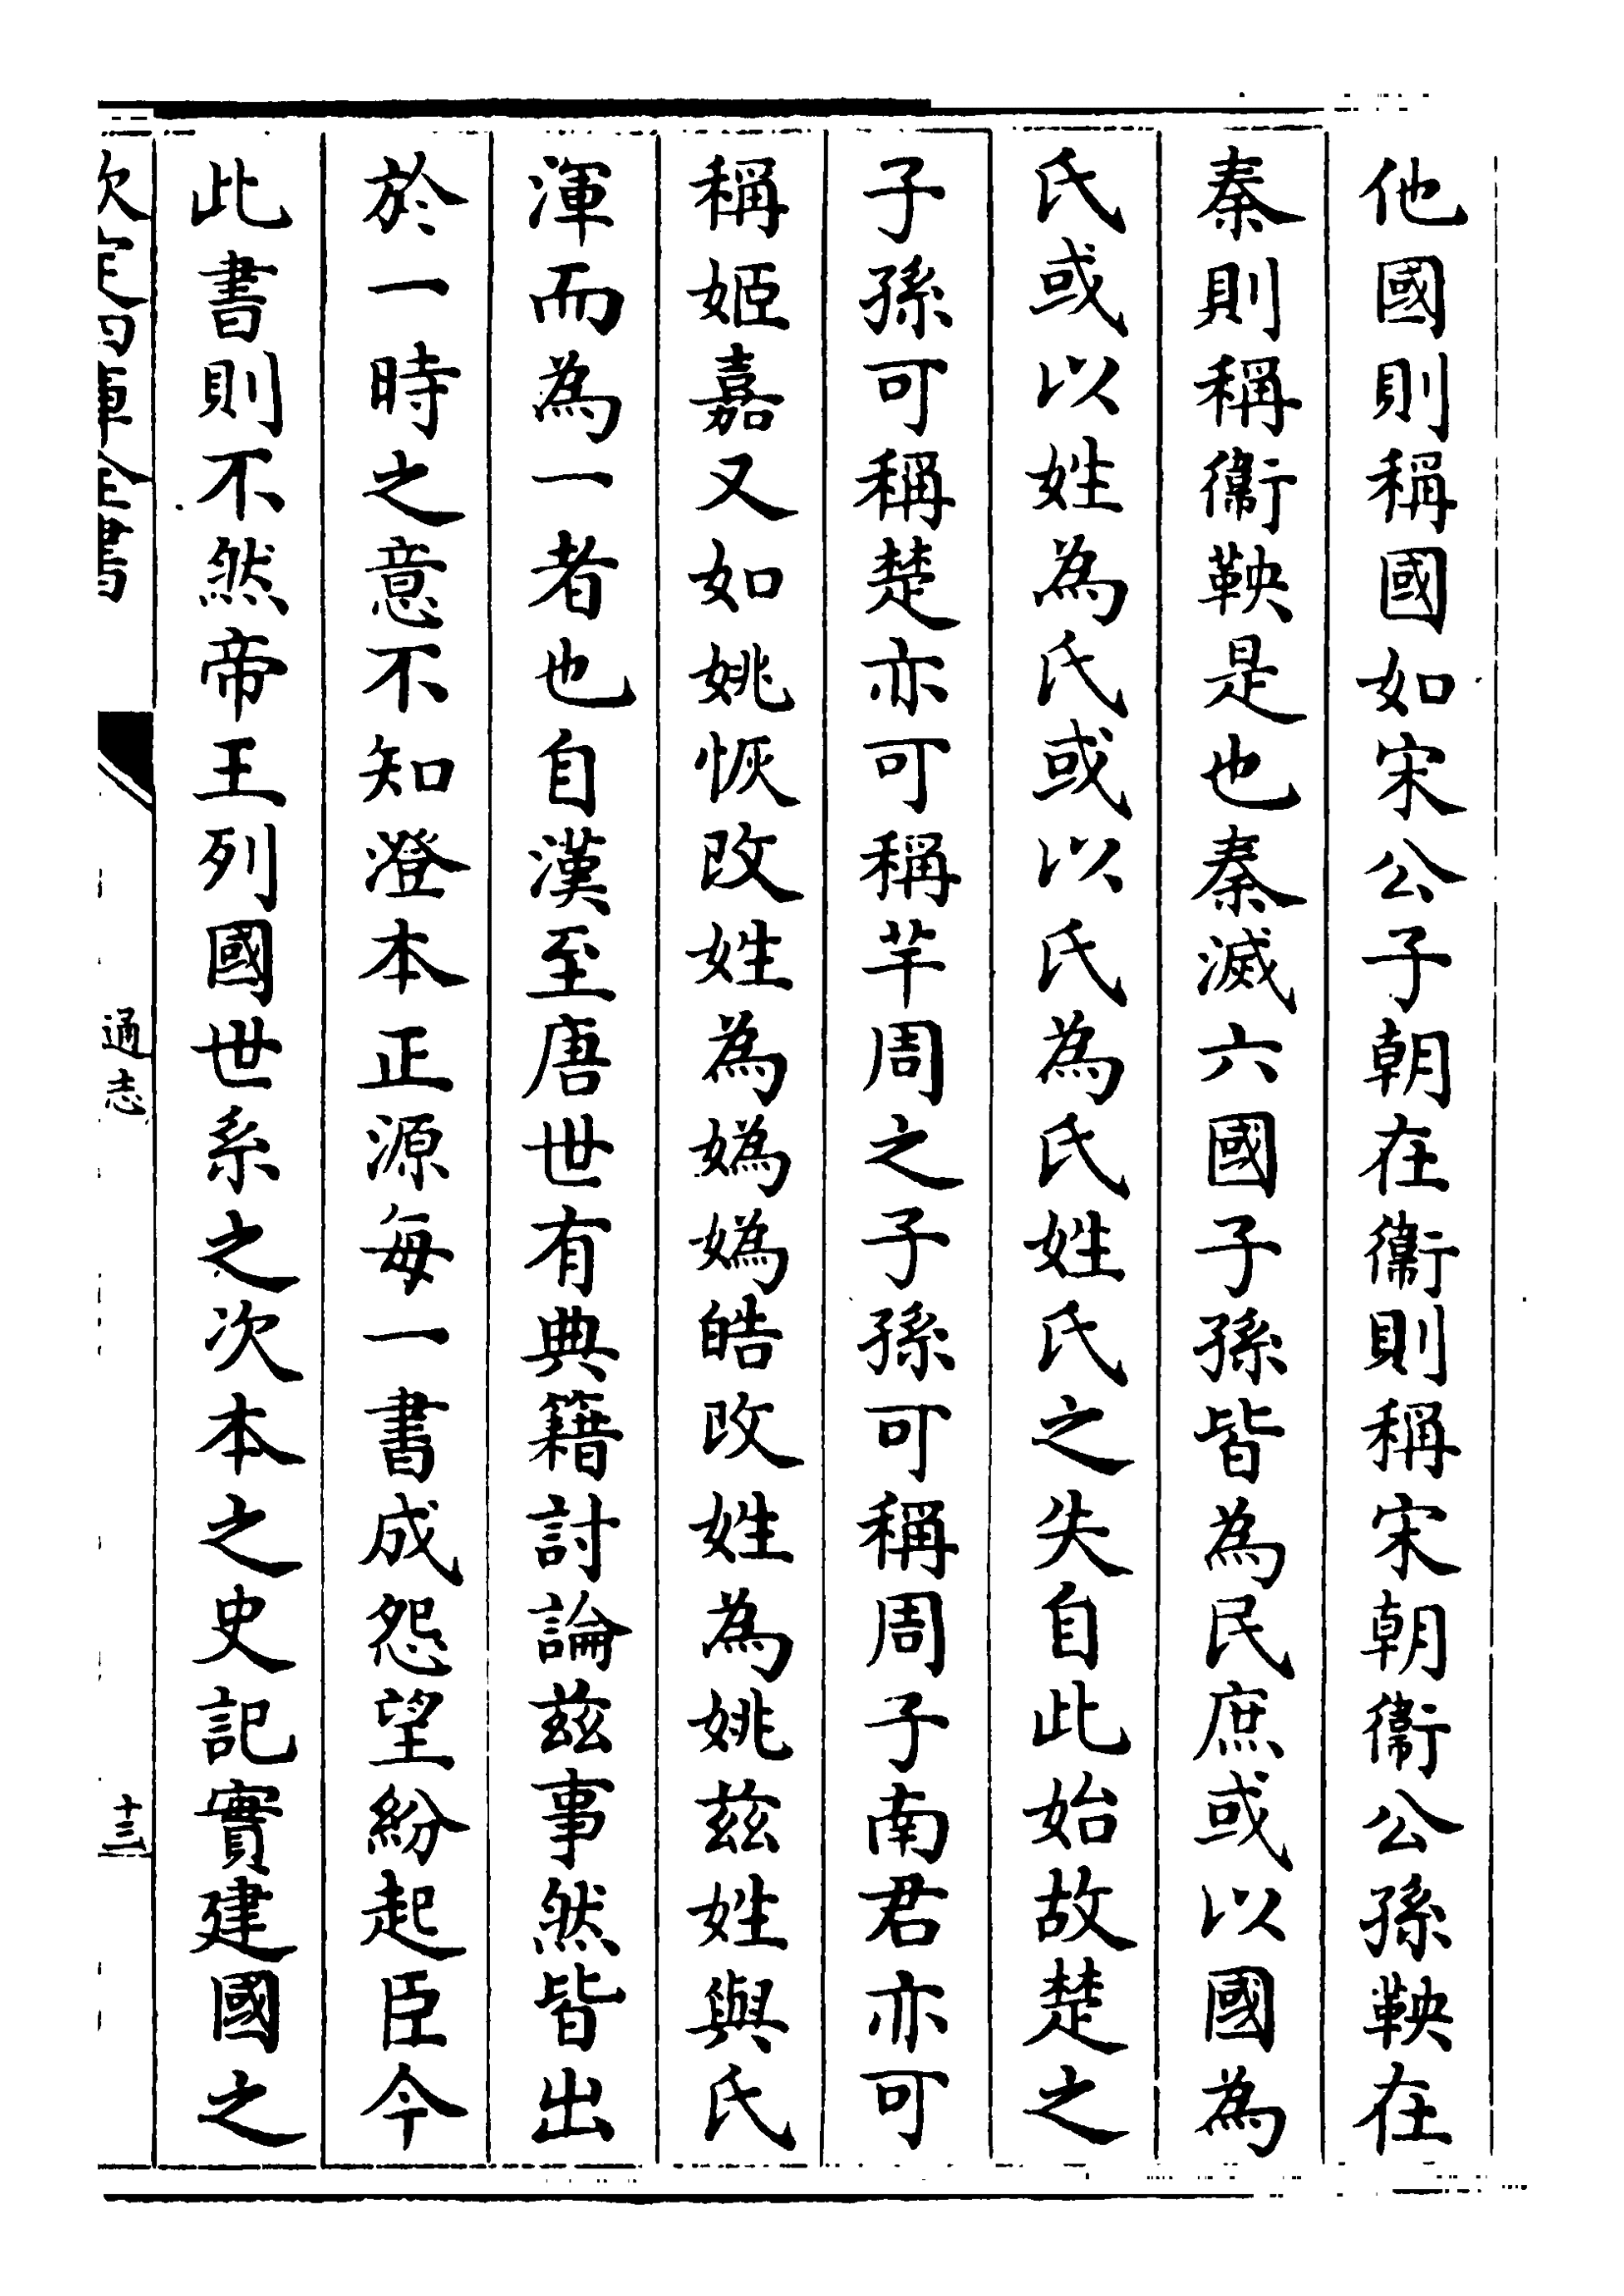 他國則稱國如宋公子朝在衞則稱宋朝衞公孫鞅在
秦則稱衞鞅是也秦滅六國子孫皆為民庶或以國為
氏或以姓為氏或以氏為氏姓氏之失自此始故楚之
子孫可稱楚亦可稱芉周之子孫可稱周子南君亦可
稱姬嘉又如姚恢改姓為媯媯皓改姓為姚茲姓與氏
渾而為一者也自漢至唐世有典籍討論茲事然皆出
於一時之意不知澄本正源每一書成怨望紛起臣今
此書則不然帝王列國世系之次本之史記實建國之
欽定四庫全書
通志
十三